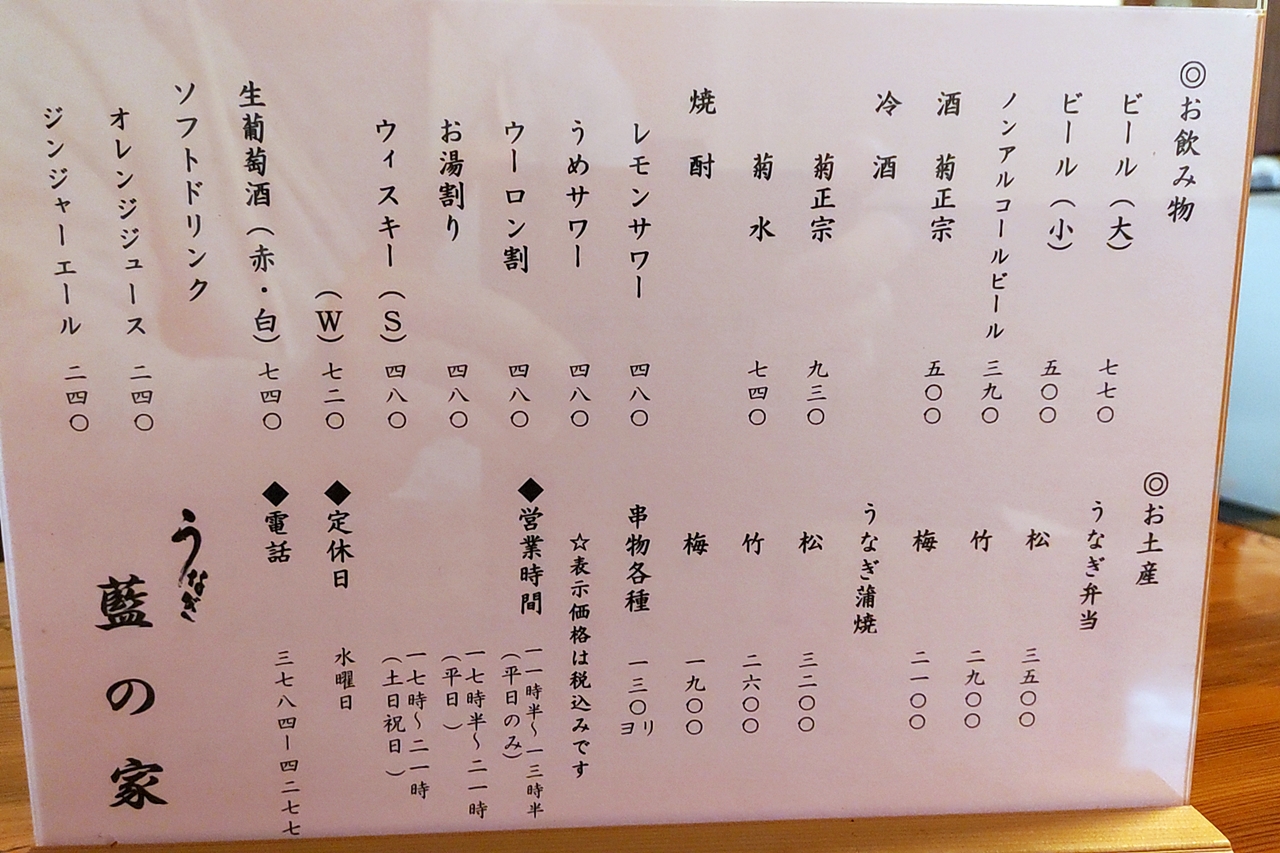 ◎お飲み物
ビール（大） 七七〇
ビール（小） 五〇〇
ノンアルコールビール 三九〇
酒 菊正宗 五〇〇
冷酒
菊正宗 九三〇
菊水 七四〇
焼酎
レモンサワー 四八〇
うめサワー 四八〇
ウーロン割 四八〇
お湯割り 四八〇
ウィスキー（S） 四八〇
（W） 七二〇
生葡萄酒（赤・白） 七四〇
ソフトドリンク
オレンジジュース 二四〇
ジンジャーエール 二四〇
◎お土産
うなぎ弁当
松 三五〇〇
竹 二九〇〇
梅 二一〇〇
うなぎ蒲焼
松 三二〇〇
竹 二六〇〇
梅 一九〇〇
串物各種 一三〇ヨリ
☆表示価格は税込みです
◆営業時間 一一時半～一三時半
（平日のみ）
一七時半～二一時
（平日）
一七時～二一時
（土日祝日）
◆定休日 水曜日
◆電話 三七八四ー四二七七
うなぎ
藍の家